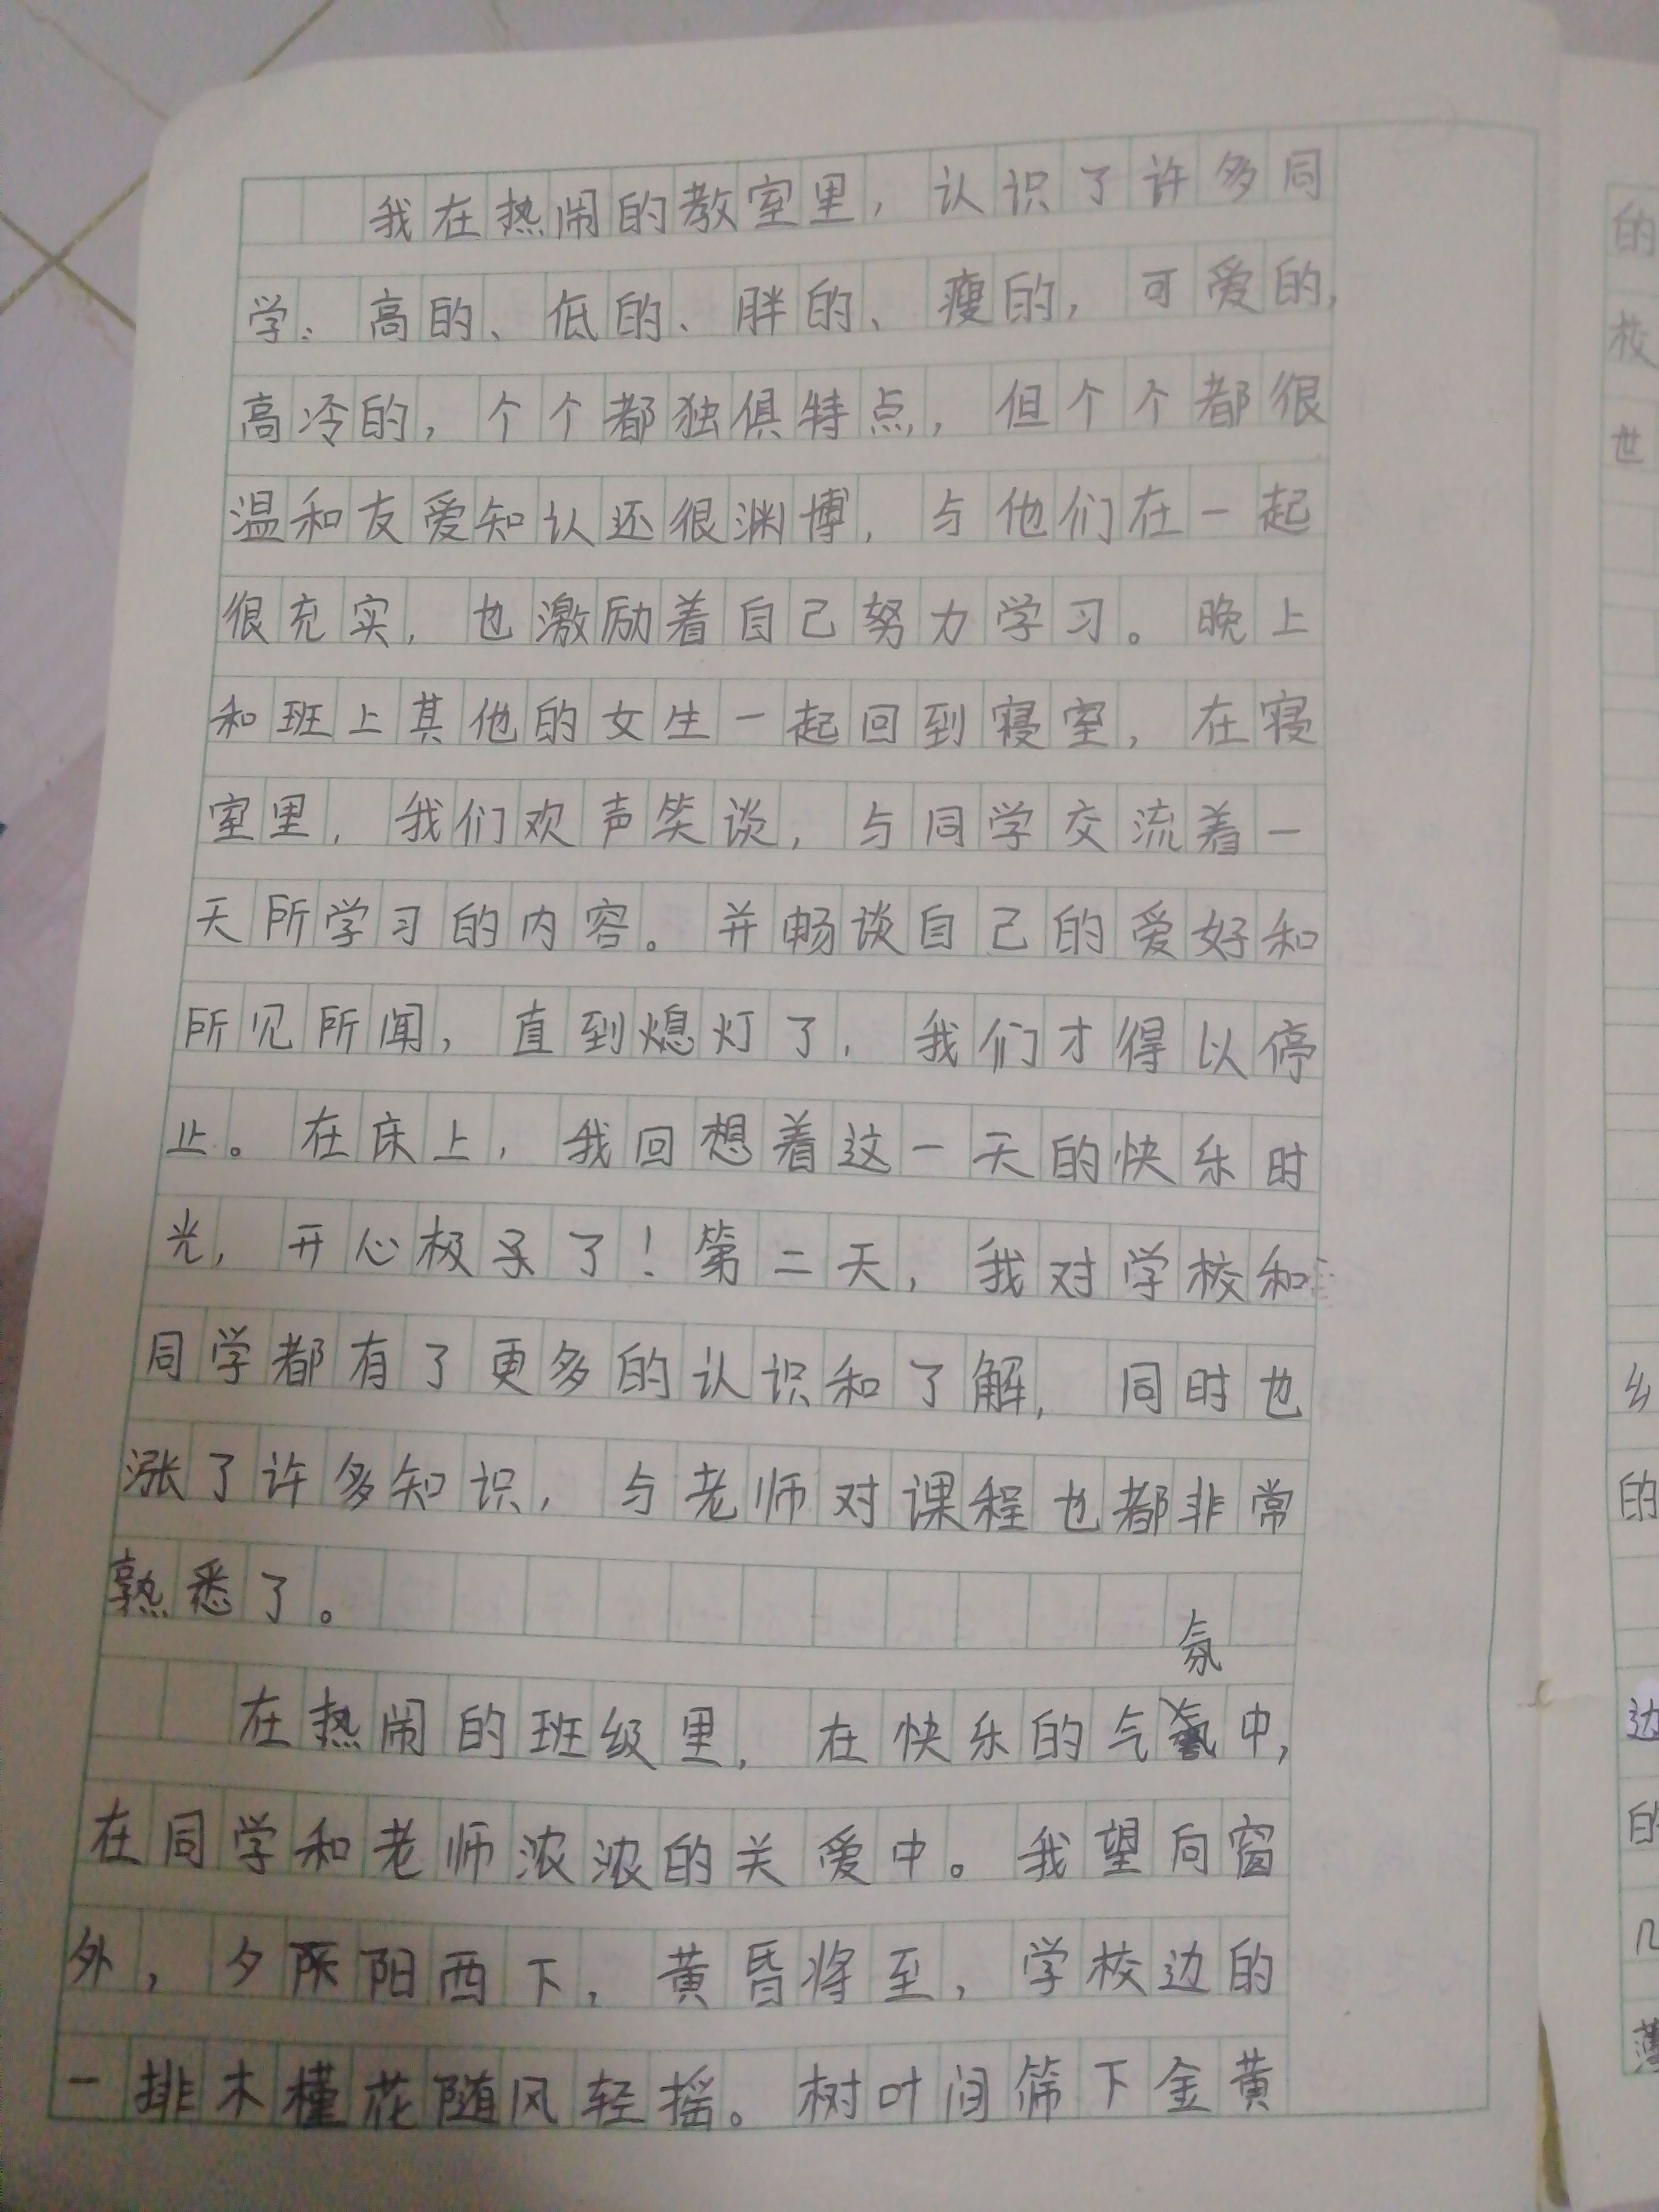 我在热闹的教室里，认识了许多同
学：高的、低的、胖的、瘦的，可爱的，
高冷的，个个都独俱特点，但个个都很
温和友爱知认还很渊博，与他们在一起
很充实，也激励着自己努力学习。晚上
和班上其他的女生一起回到寝室，在寝
室里，我们欢声笑谈，与同学交流着一
天所学习的内容。并畅谈自己的爱好和
所见所闻，直到熄灯了，我们才得以停
止。在床上，我回想着这一天的快乐时
光，开心极了！第二天，我对学校和
同学都有了更多的认识和了解，同时也
涨了许多知识，与老师对课程也都非常
熟悉了。
氛
在热闹的班级里，在快乐的气中，
在同学和老师浓浓的关爱中。我望向窗
外，夕阳西下，黄昏将至，学校边的
一排木槿花随风轻摇。树叶间筛下金黄
的
校
世
乡
的
边
的
几
薄